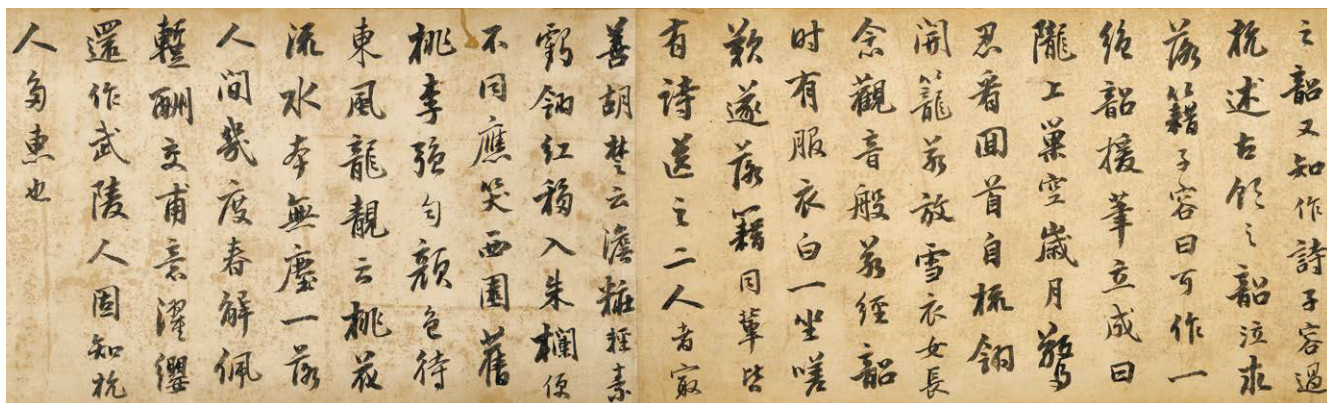 之韶又知作詩子容過
杭述古飲之韶泣求
落籍子容曰可作一
絕韶援筆立成曰
隴上巢空歲月驚
忍看囬首自梳翎
開籠若放雪衣女長
念觀音般若經韶
时有服衣白一坐嗟
歎遂落籍同輩皆
有詩送之二人者寂
善胡楚云澹粧輕素
鶴翎紅移入朱欄便
不同應笑西園舊
桃李强勻顏色待
東風龍靚云桃花
流水本無塵一落
人間幾度春解佩
蹔酬交甫意濯纓
還作武陵人固知杭
人多惠也